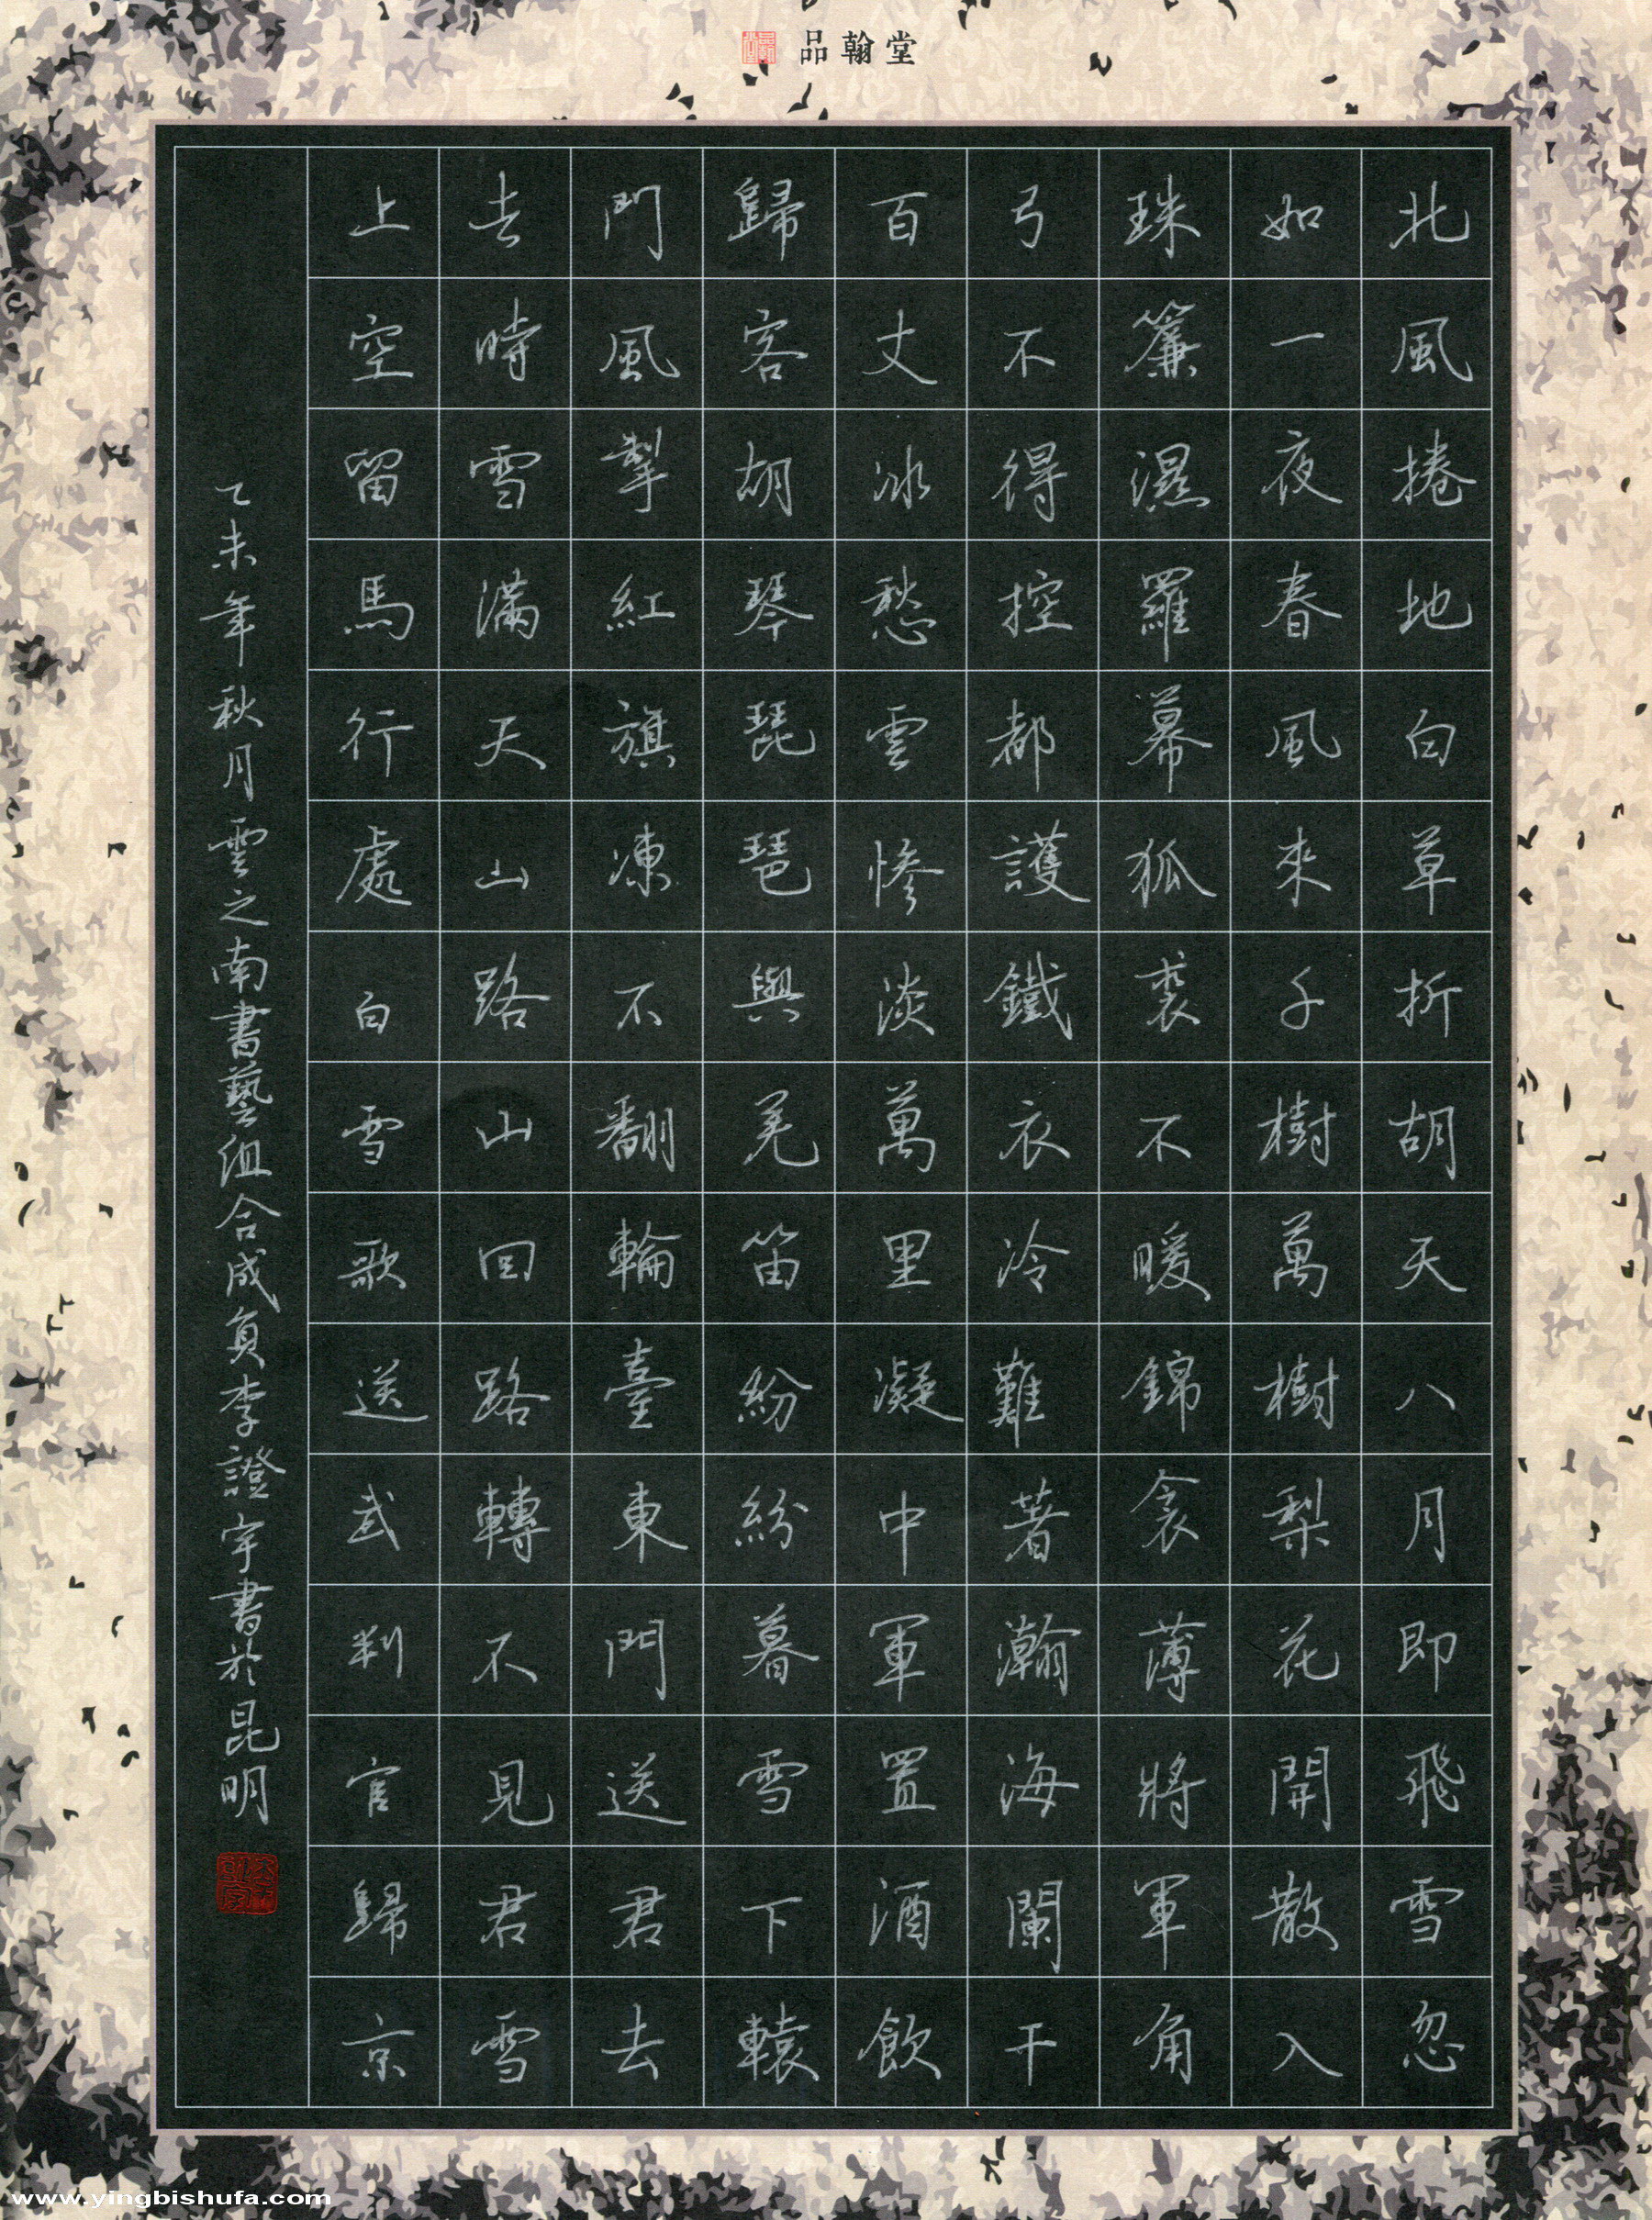 品翰堂
北風捲地白草折胡天八月即飛雪忽
如一夜春風來千樹萬樹梨花開散入
珠簾濕羅幕狐裘不暖錦衾薄將軍角
弓不得控都護鐵衣冷難著瀚海闌干
百丈冰愁雲慘淡萬里凝中軍置酒飲
歸客胡琴琵琶與羌笛紛紛暮雪下轅
門風掣紅旗凍不翻輪臺東門送君去
去時雪滿天山路山回路轉不見君雪
上空留馬行處白雪歌送武判官歸京
乙未年秋月雲之南書藝組合成員李證宇書於昆明
www.yingbishufa.com